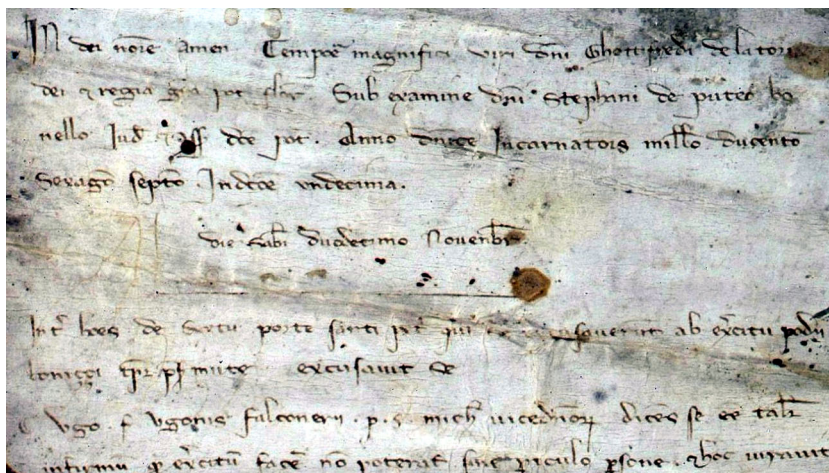 In dei noīe amen Tempoē magnifici viri dn̄i Ghottifredi de la torre
dei & regia grā pot Sub examine dn̄i Stephani de puteo bo
nello Jud & ass̄ dcē pot . Anno dn̄ice Incarnatōis millō ducentō
Sexagē septō . Indctōe undecima .
die sab̄i duodecimo Novenbr̄ .
Int̄ hoēs de Sextu porte sancti pet̄ qui ab exc̄itu podii
bonizzi excusavit se
Vgo . f . Vgonis falconerii . p . s . mich̄ vicedn̄or̄ dicēs se eē tal̄r
infirmū q̄ exc̄itū facē nō poterat sine p̄iculo p̄sone . & hoc iuravit